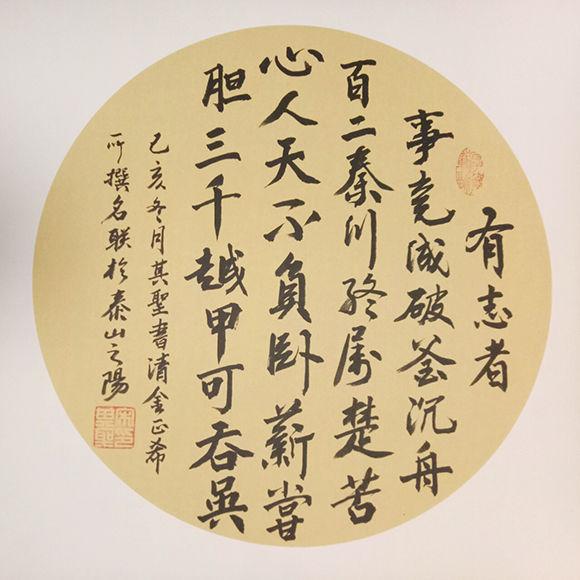 有志者
事竟成破釜沉舟
百二秦川终属楚苦
心人天不負卧薪嘗
胆三千越甲可吞吳
己亥冬月其聖書清金正希
所撰名联於泰山之陽